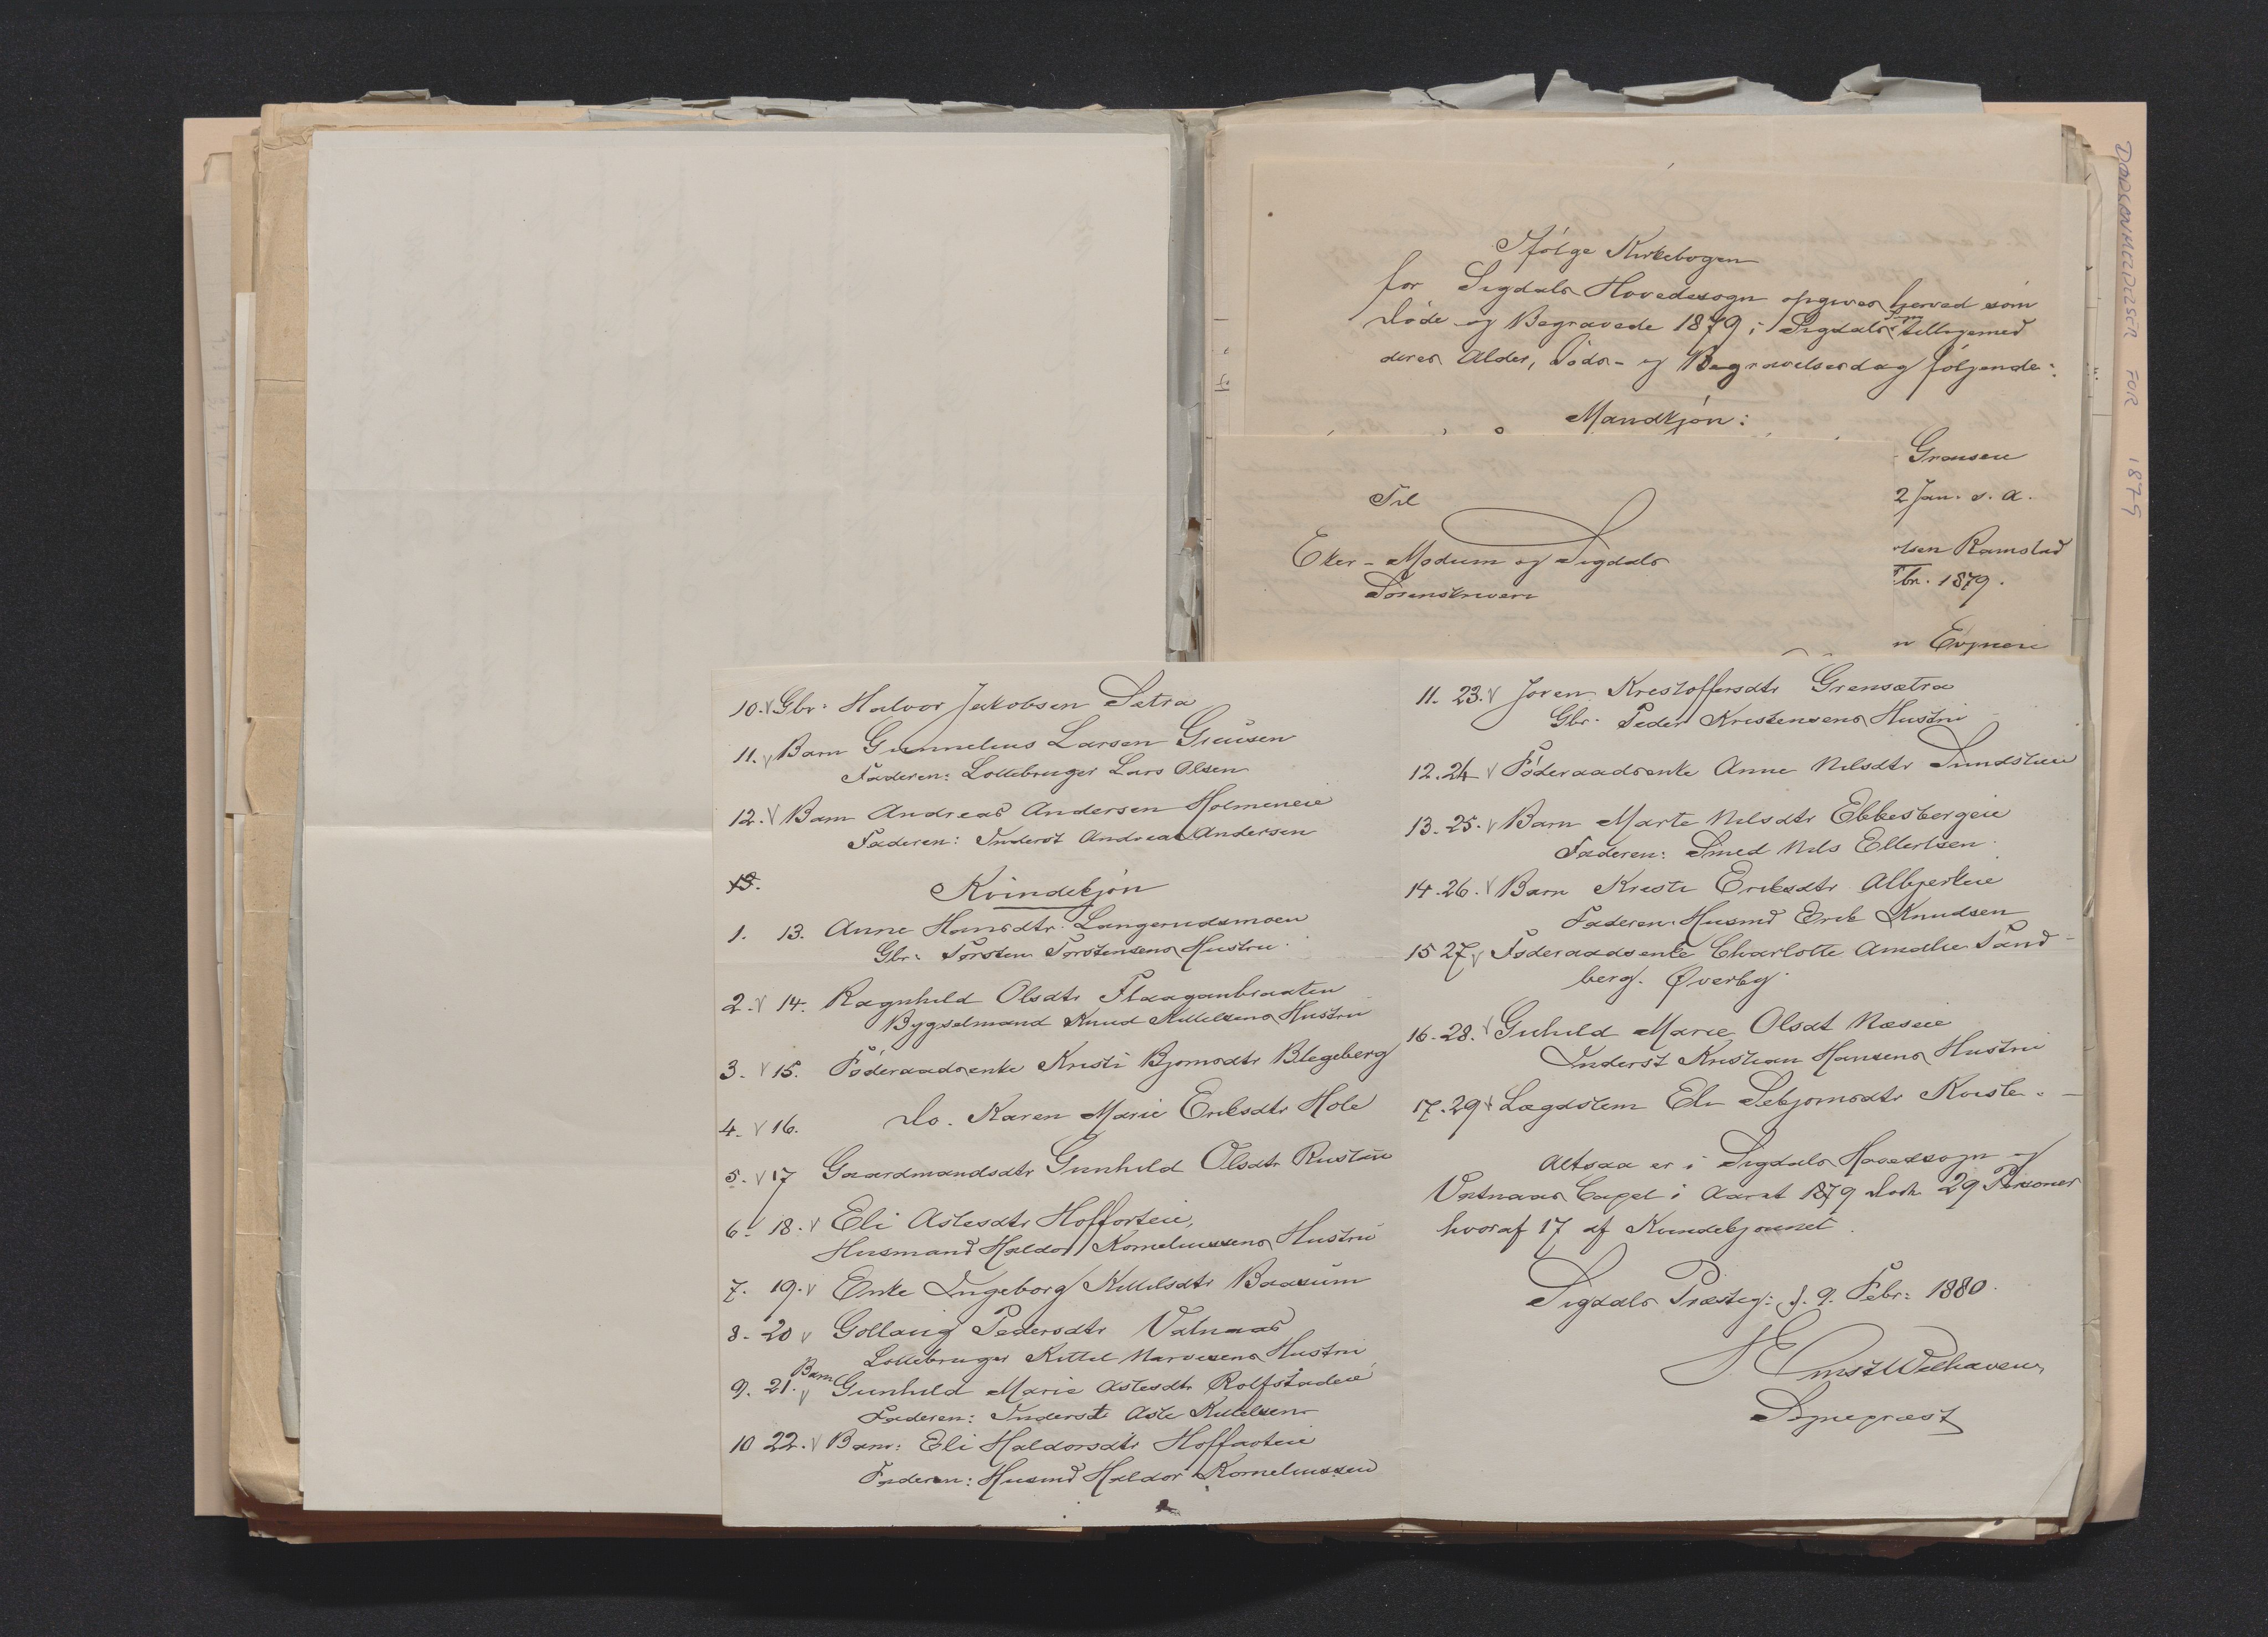 Ifølge Kirkebogen
for Sigdals Hovedsogn opgives herved som
Døde og Begravede 1879 i Sigdals tilligemed
deres Alder, Døds- og Begravelsesdag følgende:
Mandkjøn:
Gransen
2 Jan. s. A.
lsen Ramstad
br. 1879.
n Evjuen
Til
Eker-Modum og Sigdals
Sorenskriveri
10. Gbr: Halvor Jakobsen Sætra
11. Barn Gunnelius Larsen
Faderen: Lottebruger Lars Olsen
12. Barn Andreas Andersen Holmeneie
Faderen: Inderst Andreas Andersen
13.
Kvindekjøn
1. 13. Anne Hansdtr. Langerudsmoen
Gbr: Torsten Torstensens Hustru.
2. 14. Ragnhild Olsdtr Flaaganbraaten
Bygselmand Knud Kittelsens Hustru
3. 15. Føderaadsenke Kristi Bjornsdtr Blegeberg
4. 16. Do. Karen Marie Eriksdtr Hole
5. 17 Gaardmandsdtr Gunhild Olsdtr
6. 18. Eli Aslesdtr Hoffarteie,
Husmand Haldor Korneliussens Hustru
7. 19. Enke Ingeborg Kittilsdtr Baasum
8. 20 Gollaug Pedersdtr Vatnaas
Lottebruger Kittel Narvesens Hustru
9. 21. Barn Gunhild Marie Aslesdtr Rolfstadeie
Faderen: Inderst Asle Kittelsen
10 22. Barn: Eli Haldorsdtr Hoffarteie
Faderen: Husmd Haldor Korneliussen
11. 23. Joren Kristoffersdtr Grensætra
Gbr. Peder Kristensens Hustru
12. 24 Føderaadsenke Anne Nilsdtr
13. 25. Barn Marte Nilsdtr Ebbesbergeie
Faderen: Smed Nils Ellertsen.
14. 26. Barn Kristi Eriksdtr Albjerkeie
Faderen: Husmd Erik Knudsen
15 27 Føderaadsenke Charlotte Amalie Sand-
berg. Øverby.
16. 28. Guhild Marie Olsdt Næseie
Inderst Kristian Hansens Hustru
17. 29 Lægdslem Eli Sebjornsdtr Kvisle.
Altsaa er i Sigdals Hovedsogn og
Vatnaas Capel i Aaret 1879 døde 29 Personer
hvoraf 17 af Kvindekjønnet.
Sigdals Præsteg: d. 9. Febr: 1880.
Ernst Welhaven
Sognepræst
DØDSANMELDELSER FOR 1879